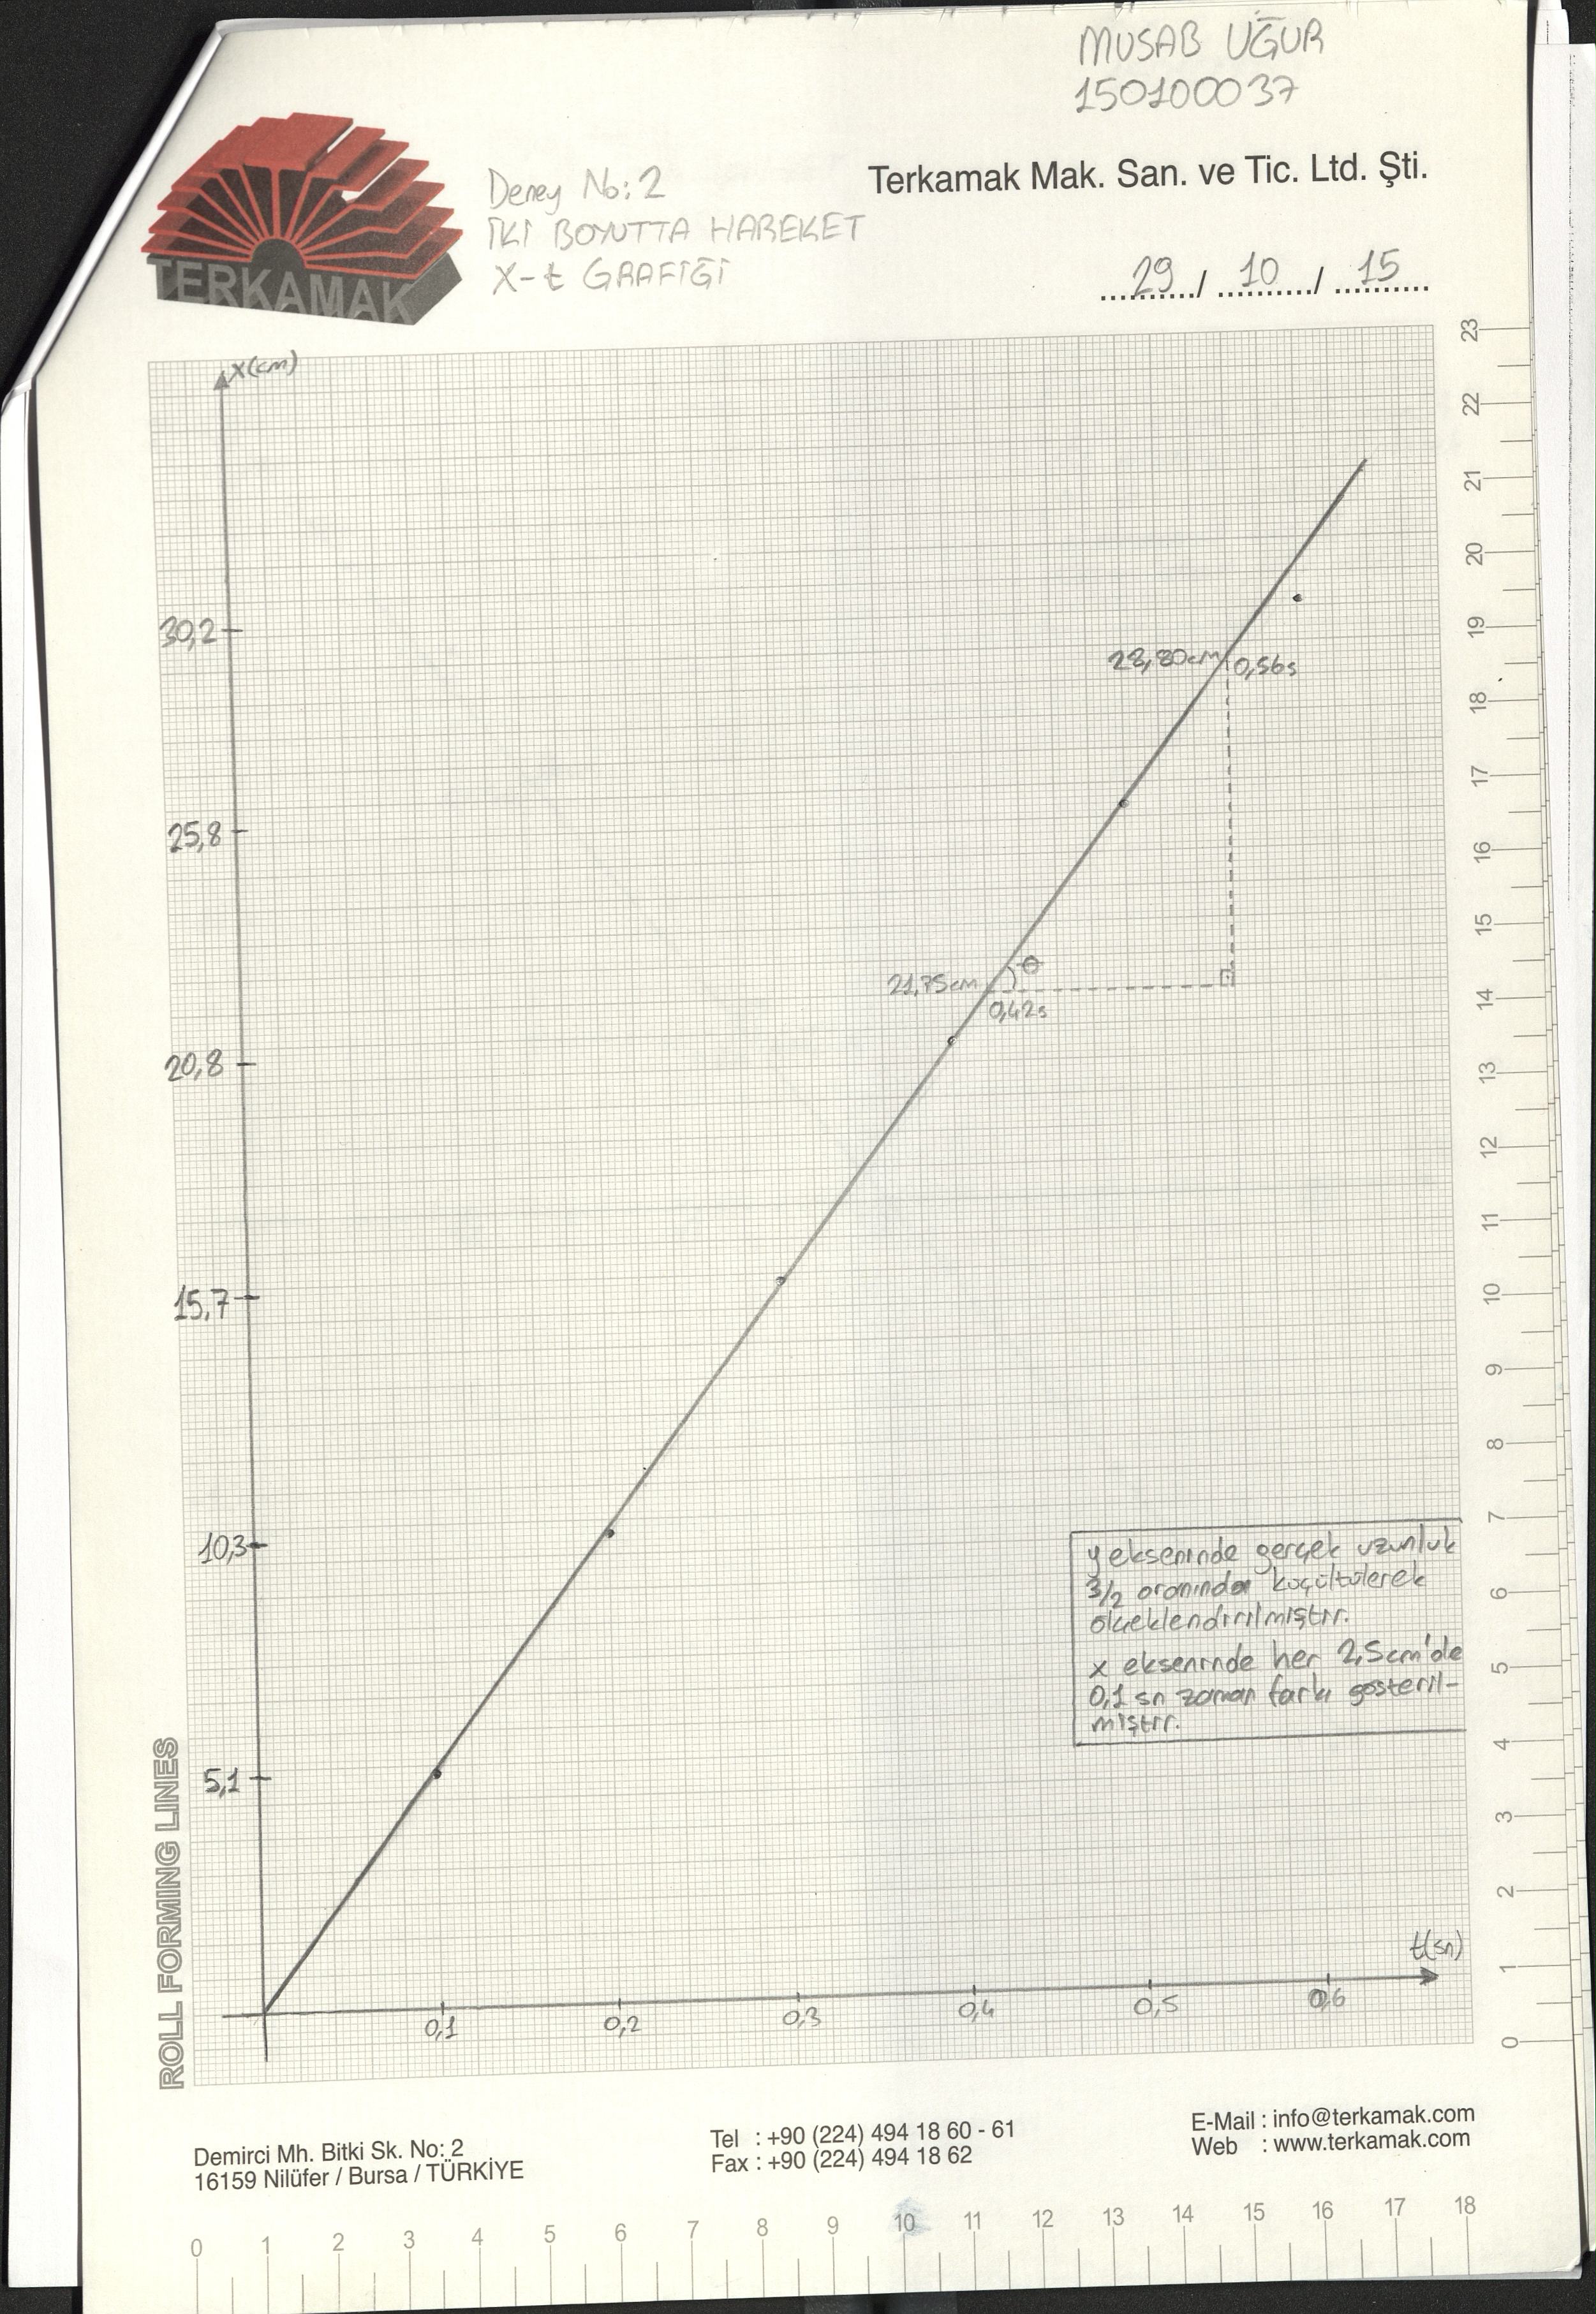 MUSAB UĞUR
150100037
TERKAMAK
Deney No: 2
İKİ BOYUTTA HAREKET
X-t GRAFİĞİ
Terkamak Mak. San. ve Tic. Ltd. Şti.
29 / 10 / 15
x(cm)
30,2
25,8
20,8
15,7
10,3
5,1
28,80cm
0,56s
21,75cm
θ
0,42s
y ekseninde gerçek uzunluk
3/2 oranından küçültülerek
ölçeklendirilmiştir.
x ekseninde her 2,5cm'de
0,1 sn zaman farkı gösteril-
miştir.
t(sn)
0,1 0,2 0,3 0,4 0,5 0,6
ROLL FORMING LINES
23
22
21
20
19
18
17
16
15
14
13
12
11
10
9
8
7
6
5
4
3
2
1
0
Demirci Mh. Bitki Sk. No: 2
16159 Nilüfer / Bursa / TÜRKİYE
Tel : +90 (224) 494 18 60 - 61
Fax : +90 (224) 494 18 62
E-Mail : info@terkamak.com
Web : www.terkamak.com
0 1 2 3 4 5 6 7 8 9 10 11 12 13 14 15 16 17 18